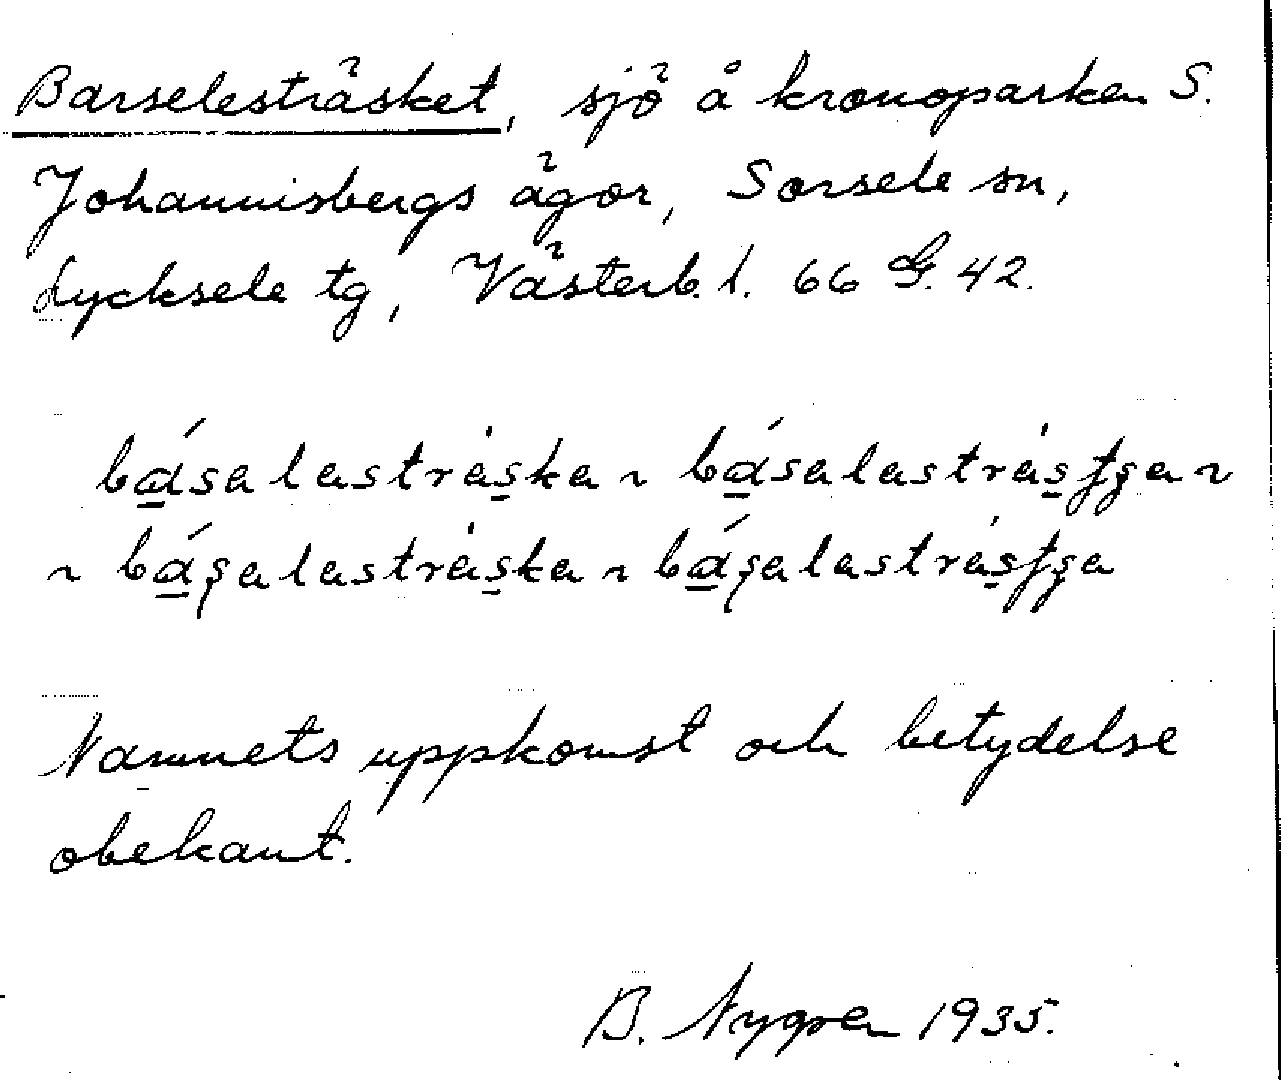 Barselesträsket, sjö å kronoparken S.
Johannisbergs ägor, Sorsele sn,
Lycksele tg, Västerb. l. 66 G. 42.
básalastráska ~ básalastrásʃʂa ~
~ báʂalastráska ~ báʂalastrásʃʂa
Namnets uppkomst och betydelse
obekant.
B. Nygren 1935.